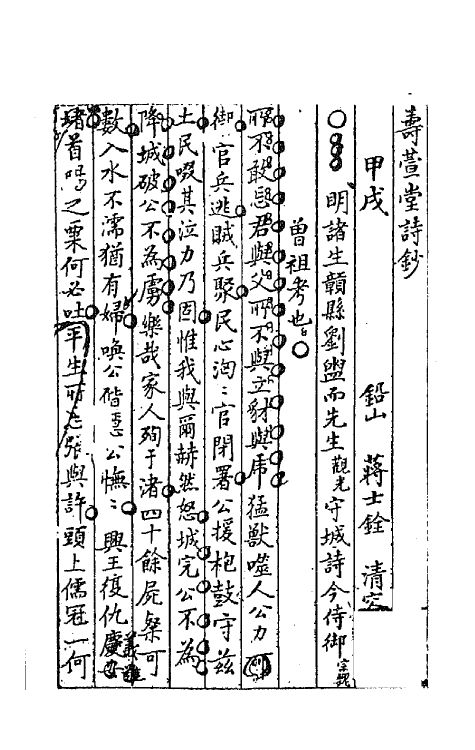 壽萱堂詩鈔
甲戌 鉛山 蔣士銓 清容
明諸生贛縣劉盥而先生觀光守城詩今侍御宗魏
曾祖考也
所不敢忘君與父所不與立豺與虎猛獸噬人公力
御官兵逃賊兵聚民心洶〻官閉署公援枹鼓守茲
土民啜其泣力乃固惟我與爾赫然怒城完公不為
降城破公不為虜樂哉家人殉于渚四十餘屍粲可
數入水不濡猶有婦喚公偕公憮〻興王復仇義誰
首嗚之粟何必吐平生所志張與許頭上儒冠一何